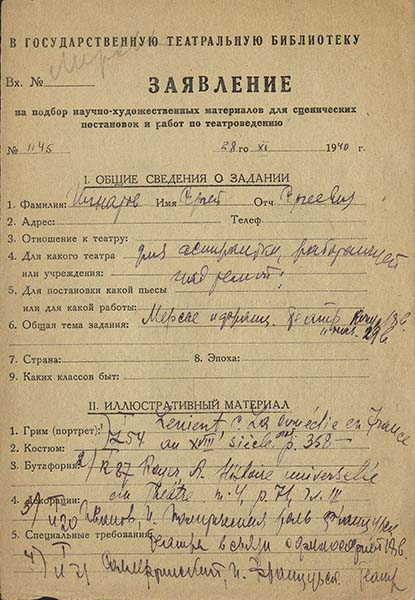 В ГОСУДАРСТВЕННУЮ ТЕАТРАЛЬНУЮ БИБЛИОТЕКУ
Вх. №
ЗАЯВЛЕНИЕ
на подбор научно-художественных материалов для сценических
постановок и работ по театроведению
№ 1145 28 го XI 1940 г.
I. ОБЩИЕ СВЕДЕНИЯ О ЗАДАНИИ
1. Фамилия: Имя Сергей Отч. Сергеевич
2. Адрес: Телеф.
3. Отношение к театру:
4. Для какого театра для аспирантки, работающей
или учреждения: над темой:
5. Для постановки какой пьесы
или для какой работы: Мерсье и франц. театр
6. Общая тема задания:
7. Страна: 8. Эпоха:
9. Каких классов быт:
II. ИЛЛЮСТРАТИВНЫЙ МАТЕРИАЛ
1. Грим (портрет): Lenient C. La comédie en France
2. Костюм: 254 au XVIII siècle p. 358
3. Бутафория: 2/ R27 Royer A. Histoire universelle
4. Декорации: du Théâtre т. 4 p.
3/ II 20 Иванов, И. Политическая роль французск.
5. Специальные требования: театра в связи с философией 18 в.
4/ II 21 и. Французск. театр